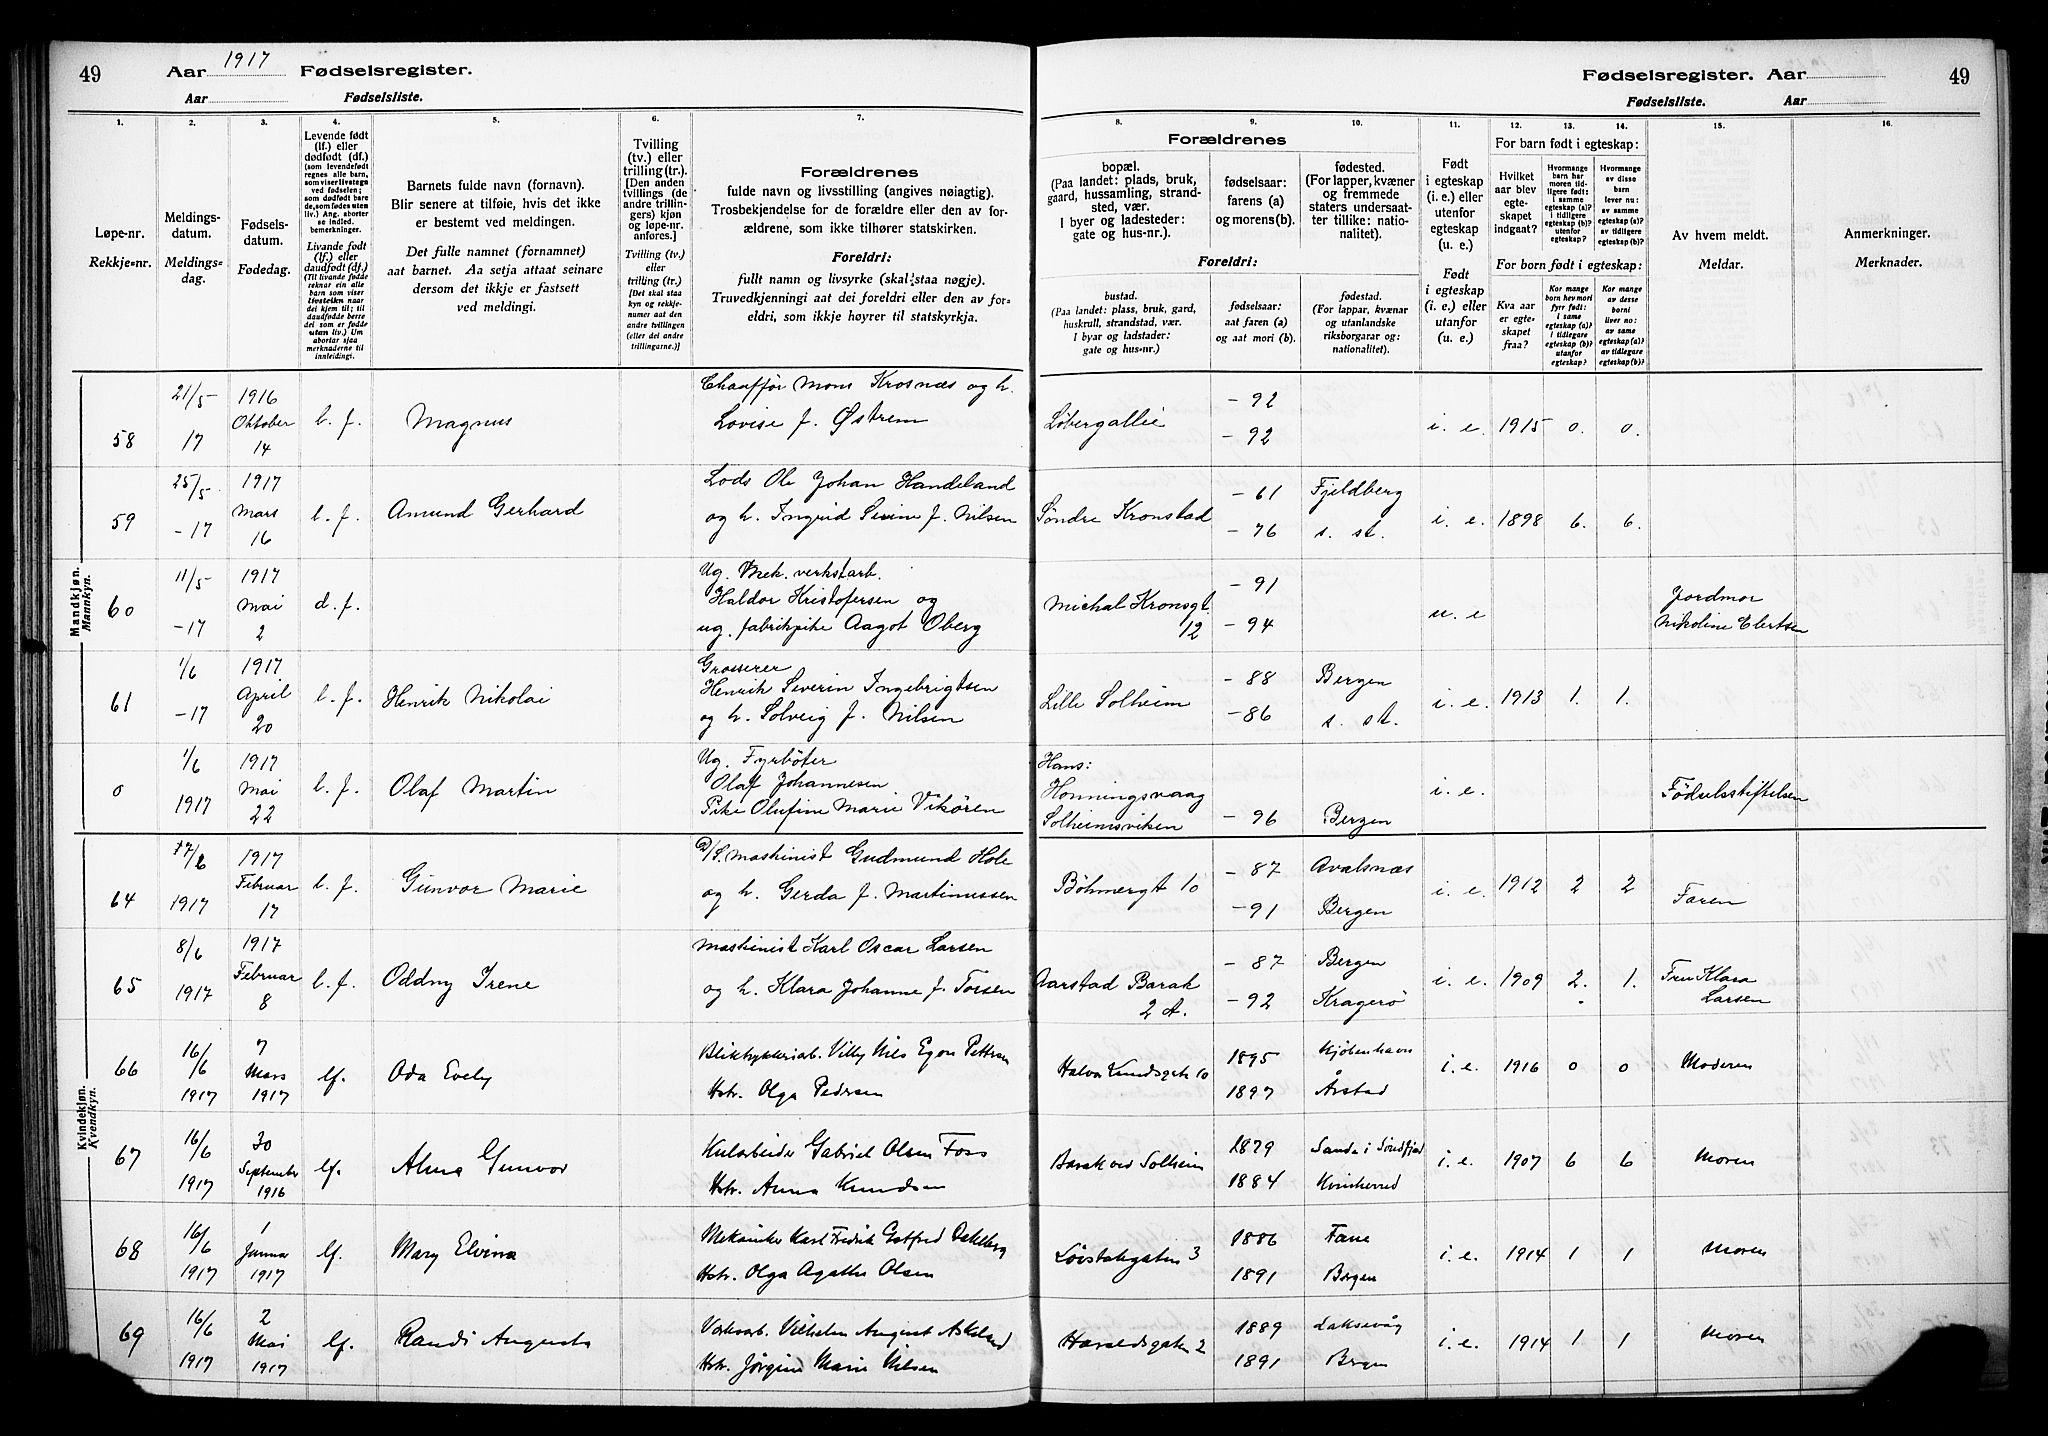 49
Aar 1917 Fødselsregister.
Aar Fødselsliste.
Fødselsregister. Aar
49
Fødselsliste. Aar
1. 2. 3. 4. 5. 6. 7. 8. 9. 10. 11. 12. 13. 14. 15. 16.
Løpe-nr.
Rekkje-nr.
Meldings-
datum.
Meldings-
dag.
Fødsels-
datum.
Fødedag.
Levende født
(lf.) eller
dødfødt (df.)
(som levendefødt
regnes alle barn,
som viser livstegn
ved fødselen;
som dødfødt bare
de, som fødes uten
liv.) Ang. aborter
se indled.
bemerkninger.
Livande født
(lf.) eller
daudfødt (df.)
(Til livande fødde
reknar ein alle
born som viser
livsteikn naar
dei kjem til; til
daudfødde berre
dei som er fødde
utan liv.) Um
abortar sjaa
merknaderne til
innleidingi.
Barnets fulde navn (fornavn).
Blir senere at tilføie, hvis det ikke
er bestemt ved meldingen.
Det fulle namnet (fornamnet)
aat barnet. Aa setja attaat seinare
dersom det ikkje er fastsett
ved meldingi.
Tvilling
(tv.) eller
trilling (tr.)
[Den anden
tvillings (de
andre trillin-
gers) kjøn
og løpe-nr.
anføres.]
Tvilling (tv.)
eller
trilling (tr.)
[Det skal staa
kyn og rekkje-
numer aat den
andre tvillingen
(eller dei andre
trillingarne.)]
Forældrenes
fulde navn og livsstilling (angives nøiagtig).
Trosbekjendelse for de forældre eller den av for-
ældrene, som ikke tilhører statskirken.
Foreldri:
fullt namn og livsyrke (skal staa nøgje).
Truvedkjenningi aat dei foreldri eller den av for-
eldri, som ikkje høyrer til statskyrkja.
Forældrenes
bopæl.
(Paa landet: plads, bruk,
gaard, hussamling, strand-
sted, vær.
I byer og ladesteder:
gate og hus-nr.).
fødselsaar:
farens (a)
og morens (b).
fødested.
(For lapper, kvæner
og fremmede
staters undersaat-
ter tillike: natio-
nalitet).
Foreldri:
bustad.
(Paa landet: plass, bruk, gard,
huskrull, strandstad, vær.
I byar og ladstader:
gate og hus-nr.)
fødselsaar:
aat faren (a)
og aat mori (b).
fødestad.
(For lappar, kvænar
og utanlandske
riksborgarar og:
nationalitet).
Født
i egteskap
(i. e.) eller
utenfor
egteskap
(u. e.)
Født
i egteskap
(i. e.) eller
utanfor
(u. e.)
For barn født i egteskap:
Hvilket
aar blev
egte-
skapet
indgaat?
Hvormange
barn har
moren tid-
ligere født:
i samme
egteskap (a)?
i tidligere
egteskap (b)?
utenfor
egteskap?
Hvormange
av disse
barn
lever nu:
av samme
egteskap (a)?
av tidligere
egteskap (b)?
For born født i egteskap:
Kva aar
er egte-
skapet
fraa?
Kor mange
born hev mori
fyrr født:
i same
egteskap (a)?
i tidlegare
egteskap (b)?
utanfor
egteskap?
Kor mange
av desse
borni
liver no:
av same
egteskap (a)?
av tidlegare
egteskap (b)?
Av hvem meldt.
Meldar.
Anmerkninger.
Merknader.
Mandkjøn.
Mannkyn.
58 21/5 17 1916 Oktober 14 l. f. Magnus
Chaaffør Mons Krosnæs og h.
Lovise f. Østrem
Løbergallie - 92 - 92 i. e. 1915 0. 0.
59 25/5 - 17 1917 Mars 16 l. f. Amund Gerhard
Lods Ole Johan Handeland
og h. Ingrid Severine f. Nilsen
Søndre Kronstad - 61 Fjeldberg - 76 s. st. i. e. 1898 6. 6.
60 11/5 - 17 1917 Mai 2 d. f.
Ug. Mek. verkstarb.
Haldor Kristofersen og
ug. fabrikpike Aagot Oberg
Michal Kronsgt. 12 - 91 - 94 u. e Jordmor
Nikoline Elertsen
61 1/6 - 17 1917 April 20 l. f. Henrik Nikolai
Grosserer
Henrik Severin Ingebrigtsen
og h. Solveig f. Nilsen
Lille Solheim - 88 Bergen - 86 s. st. i. e. 1913 1. 1.
0 1/6 1917 1917 Mai 22 l. f. Olaf Martin
Ug. Fyrbøter
Olaf Johannesen
Pike Olufine Marie Vikøren
Hans:
Honningsvaag
Solheimsviken - 96 Bergen i. e. Fødselsstiftelsen
Kvindekjøn.
Kvendkyn.
64 1917 1917 Februar 17 l. f. Gunvor Marie
D/S. maskinist Gudmund Hole
og h. Gerda f. Martinussen
Bøhmergt 10 - 87 Avalsnæs - 91 Bergen i. e. 1912 2 2 Faren
65 8/6 1917 1917 Februar 8 l. f. Oddny Irene
Maskinist Karl Oscar Larsen
og h. Klara Johanne f. Torsen
Aarstad Barak 2 A. - 87 Bergen - 92 Kragerø i. e. 1909 2. 1. Fru Klara
Larsen
66 16/6 1917 7 Mars 1917 lf. Oda Evely
Villy Nils Egon Pettersen
Hstr. Olga Pedersen
Halvor Knudsgate 10 1895 Kjøbenhavn 1897 Årstad i. e. 1916 0 0 Moderen
67 16/6 1917 30 September 1916 lf. Alma Gunvor
Kularbeider Gabriel Olsen Foss
Hstr. Anna Knudsen
Barak ved Solheim 1879 Sande i Søndfjord 1884 Kvinherred i. e. 1907 6 6 Moren
68 16/6 1917 1 Januar 1917 lf. Mary Elvina
Mekaniker Karl Fredrik Gotfred Dahlberg
Hstr. Olga Agathe Olsen
Løvstakgaten 3 1886 Fane 1891 Bergen i. e. 1914 1 1 Moren
69 16/6 1917 2 Mai 1917 lf. Randi Augusta
Vilhelm August Askeland
Hstr. Jørgine Marie Nilsen
Haraldsgaten 2 1889 Laksevåg 1891 Bergen i. e. 1914 1 1 Moren